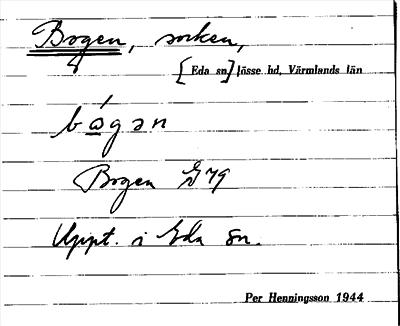 Bogen, socken,
[Eda sn] Jösse hd, Värmlands län
bógən
Bogen G79
Uppt. i Eda sn.
Per Henningsson 1944